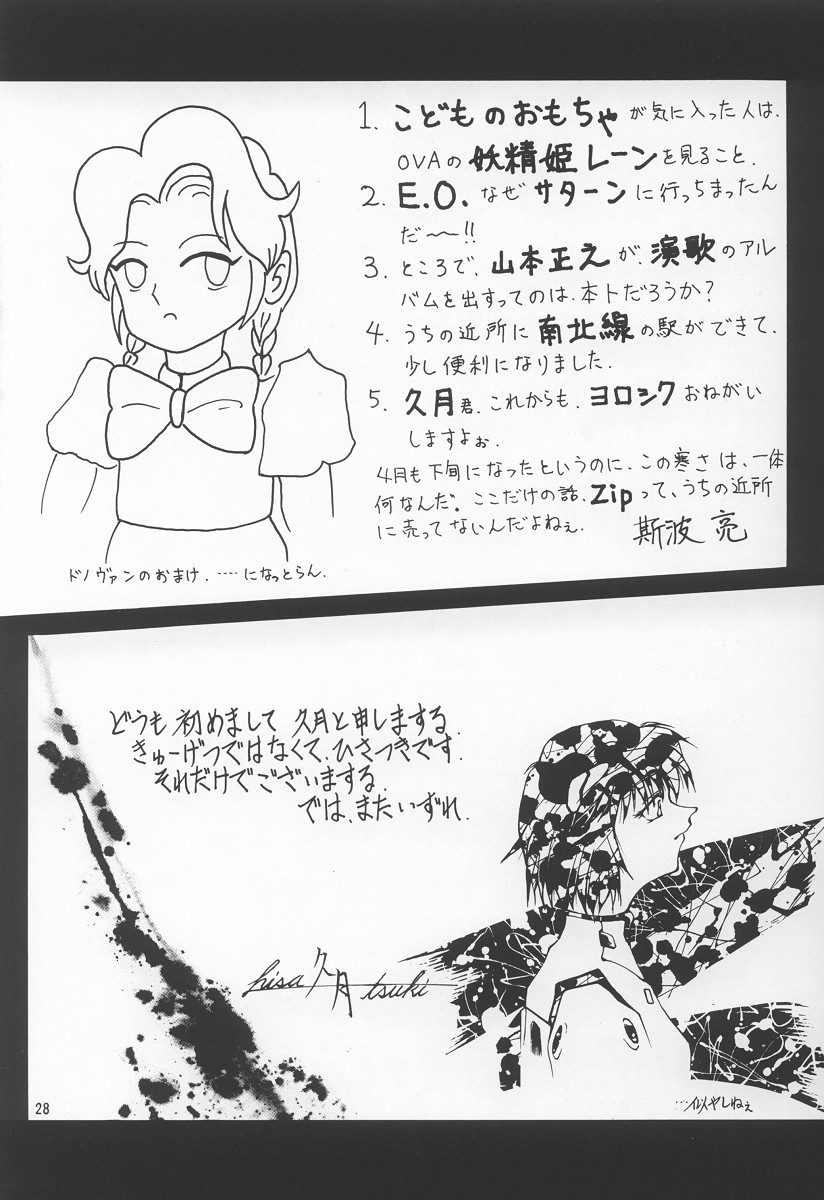 1. こどものおもちゃが気に入った人は、
OVAの妖精姫レーンを見ること.
2. E.O. なぜサターンに行っちまったん
だ〜〜!!
3. ところで、山本正之が、演歌のアル
バムを出すってのは、本トだろうか?
4. うちの近所に南北線の駅ができて、
少し便利になりました.
5. 久月君、これからも、ヨロシクおねがい
しますよぉ.
4月も下旬になったというのに、この寒さは、一体
何なんだ。ここだけの話、Zipって、うちの近所
に売ってないんだよねぇ.
斯波 亮
ドノヴァンのおまけ. ‥‥になっとらん.
どうも初めまして 久月と申しまする.
きゅーげつではなくて、ひさつきです.
それだけでございまする.
では、またいずれ.
hisa久月tsuki
…似やしねぇ
28